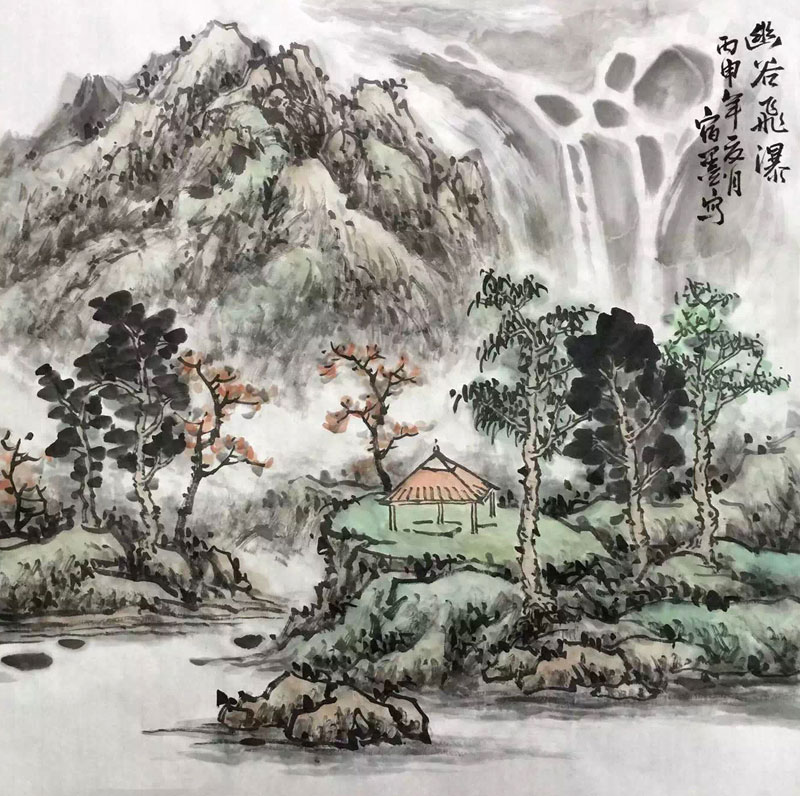 幽谷飛瀑
丙申年夏月
宿墨写